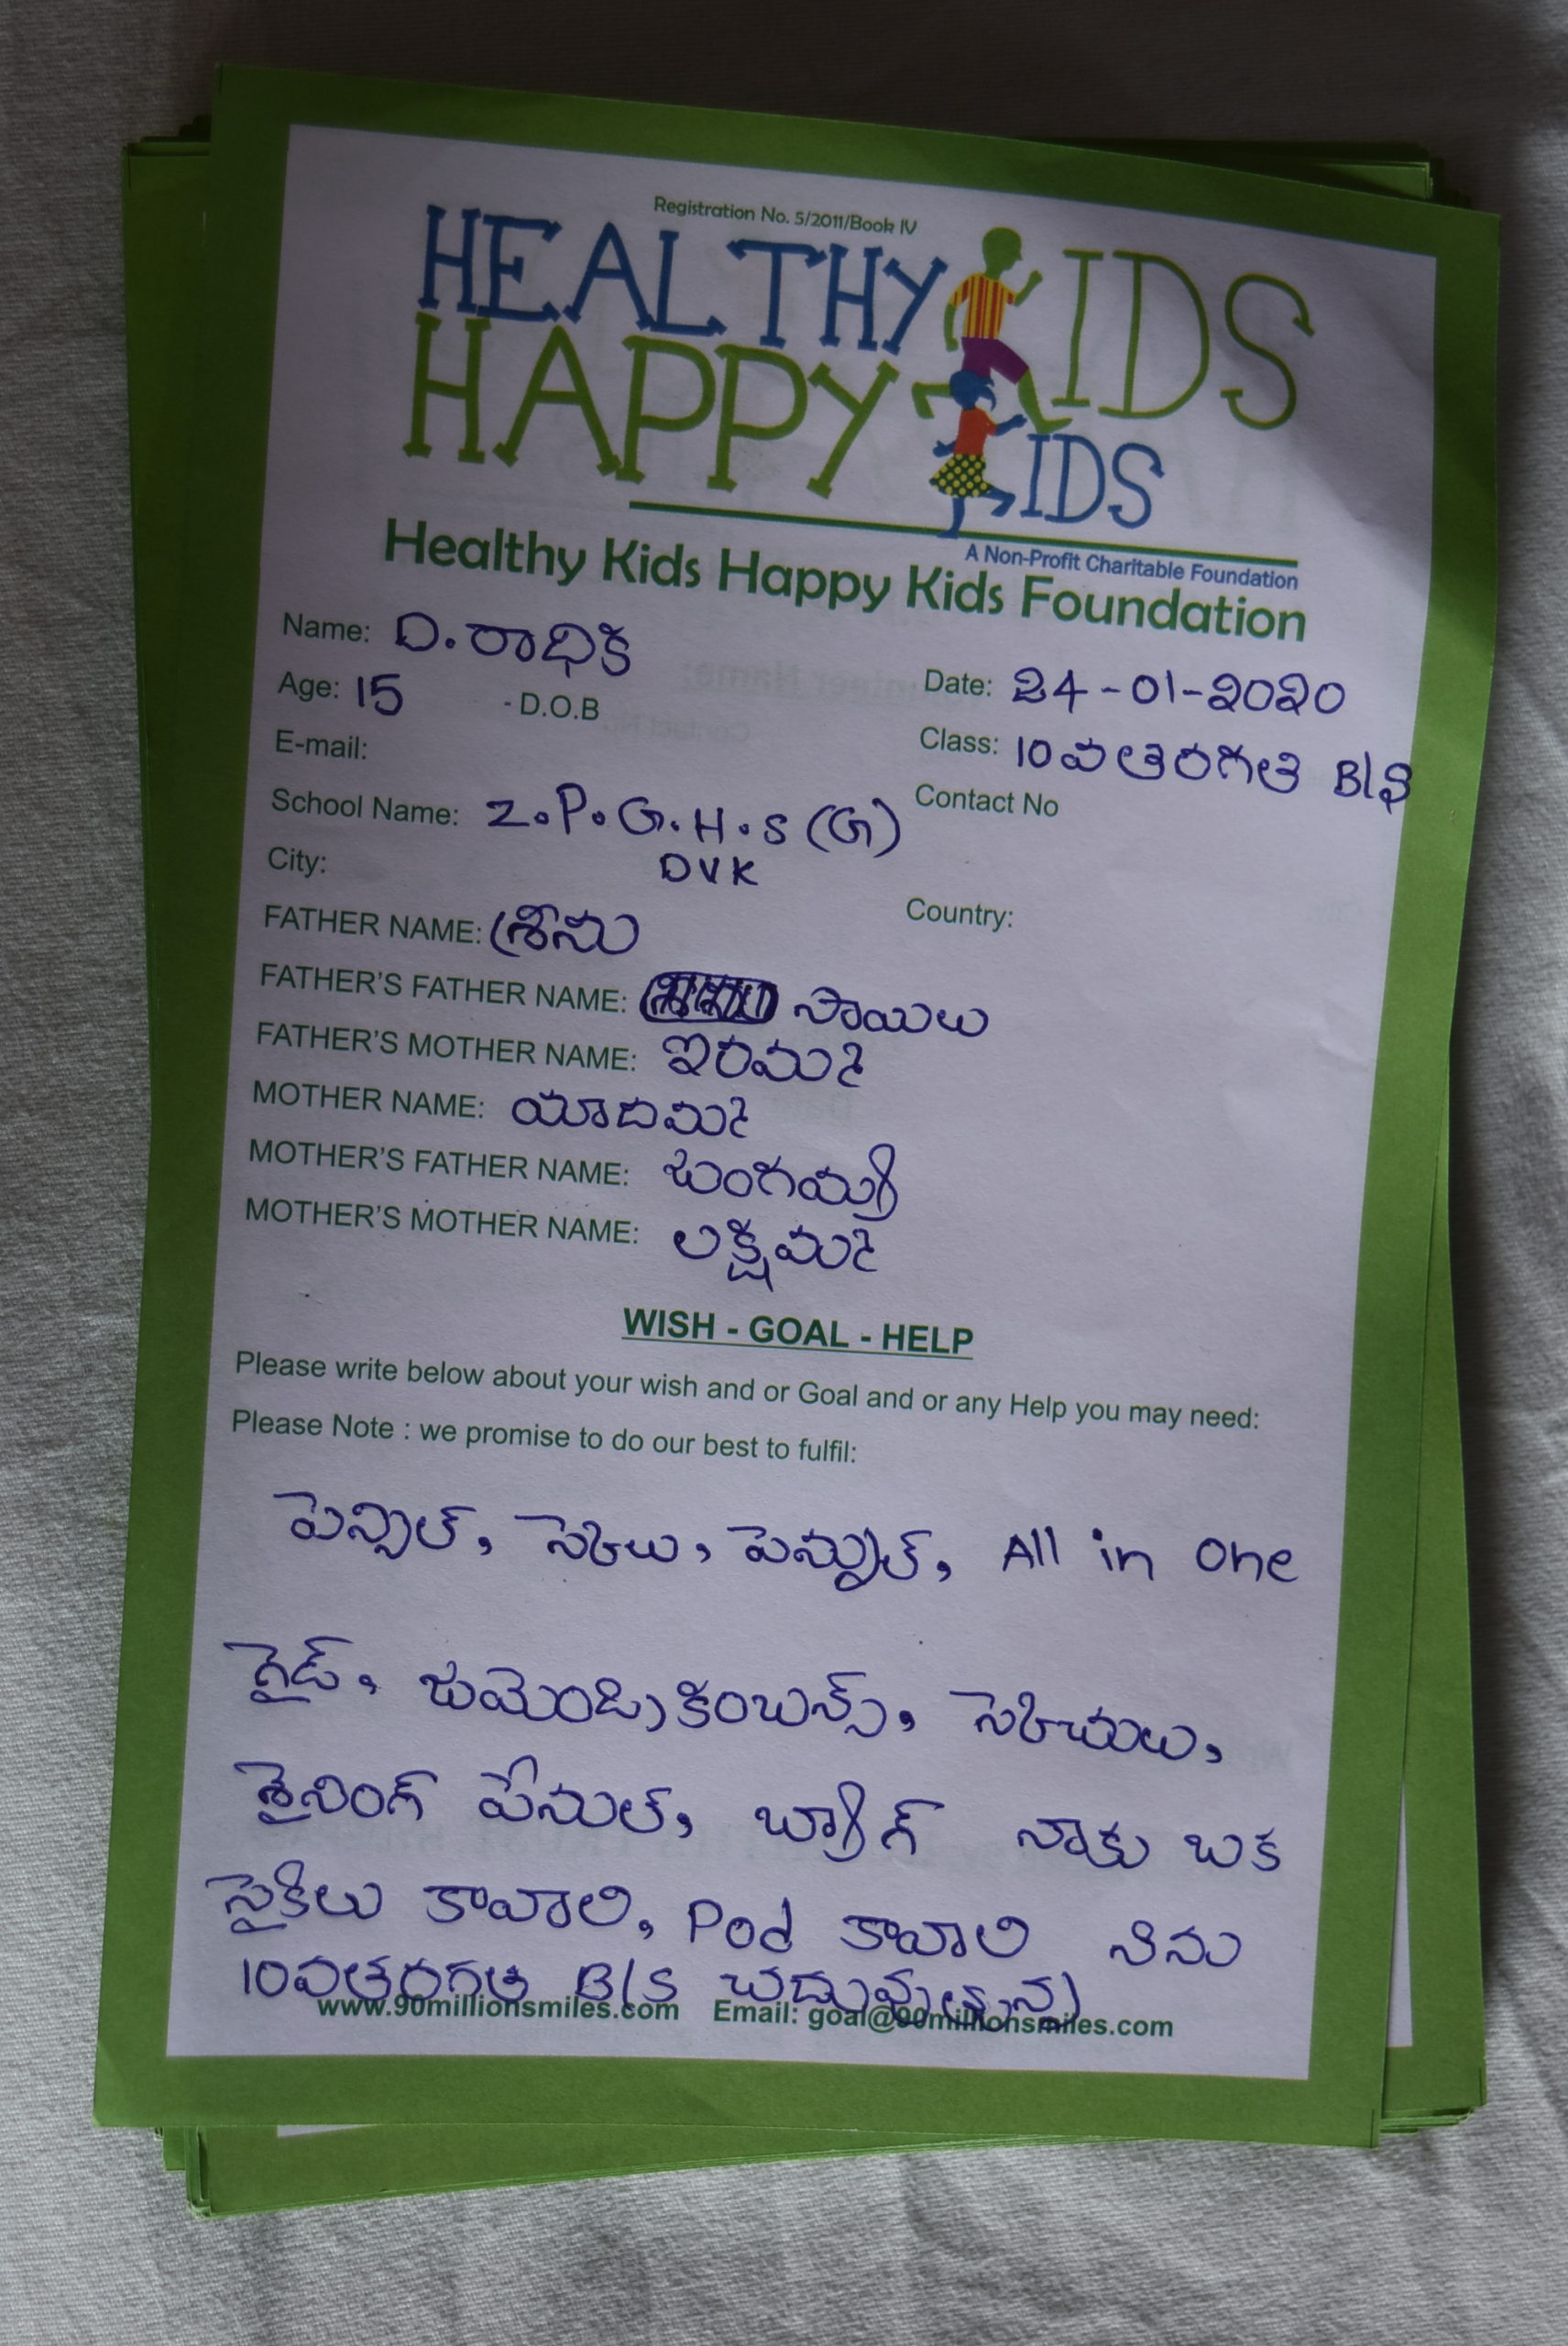 Registration No. 5/2011/Book IV
HEALTHY KIDS
HAPPY KIDS
A Non-Profit Charitable Foundation
Healthy Kids Happy Kids Foundation
Name: D. రాధిక
Date: 24-01-2020
Age: 15 - D.O.B
Class: 10వ తరగతి B/S
E-mail:
Contact No
School Name: Z.P.G.H.S (G)
DVK
City:
Country:
FATHER NAME: శ్రీను
FATHER'S FATHER NAME: సాయిలు
FATHER'S MOTHER NAME: ఇరమ్మ
MOTHER NAME: యాదమ్మ
MOTHER'S FATHER NAME: బంగయ్య
MOTHER'S MOTHER NAME: లక్ష్మిమ్మ
WISH - GOAL - HELP
Please write below about your wish and or Goal and or any Help you may need:
Please Note : we promise to do our best to fulfil:
పెన్సిల్, స్కేలు, పెన్నుల్, All in One
గైడ్, జామెండ్రి కంబక్స్, స్కెచులు,
శైనింగ్ పేనుల్, బ్యాగ్ నాకు ఒక
సైకిలు కావాలి, Pad కావాలి నేను
10వతరగతి B/S చదువుతున్న
www.90millionsmiles.com Email: goal@90millionsmiles.com